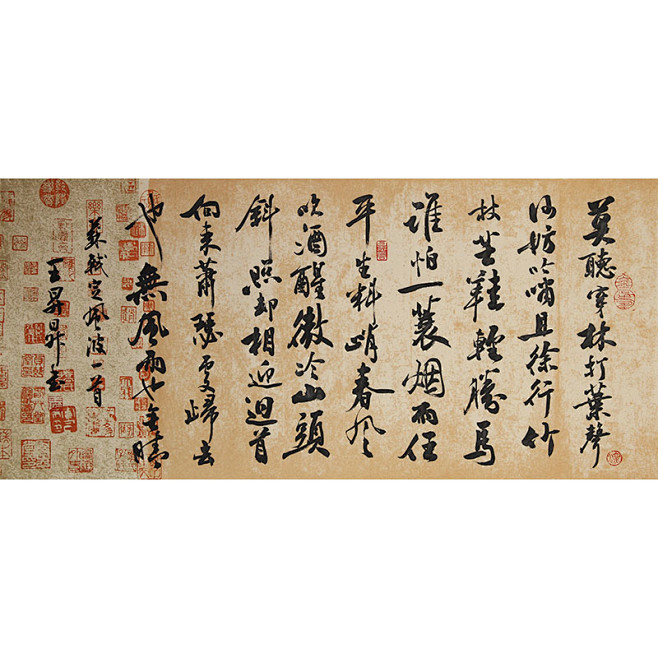 莫聽穿林打葉聲
何妨吟嘯且徐行竹
杖芒鞋輕勝馬
誰怕一蓑烟雨任
平生料峭春風
吹酒醒微冷山頭
斜照却相迎迴首
向来蕭瑟處歸去
也無風雨也無晴
蘇軾定風波一首
王昇